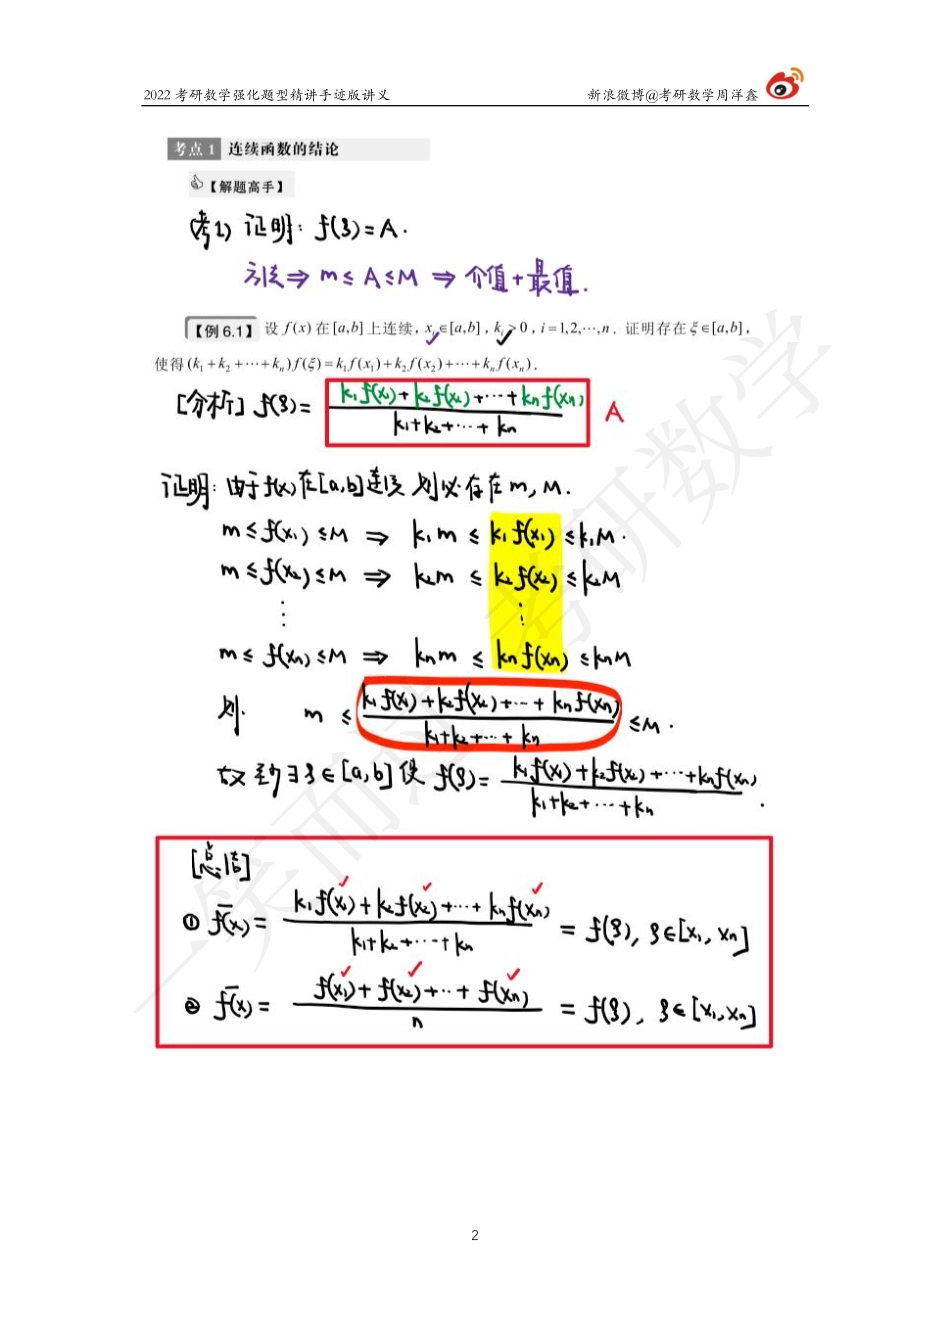 2022 考研数学强化题型精讲手迹版讲义 新浪微博@考研数学周洋鑫
考点 1 连续函数的结论
【解题高手】
(考1) 证明: f(ξ)=A.
方法⇒ m≤A≤M ⇒ 介值+最值.
【例 6.1】 设 f(x) 在 [a,b] 上连续, xᵢ∈[a,b], kᵢ>0, i=1,2,⋯,n. 证明存在 ξ∈[a,b],
使得 (k₁+k₂+⋯+kₙ)f(ξ)=k₁f(x₁)+k₂f(x₂)+⋯+kₙf(xₙ).
[分析] f(ξ)= (k₁f(x₁)+k₂f(x₂)+⋯+kₙf(xₙ))/(k₁+k₂+⋯+kₙ) A
证明: 由于f(x)在[a,b]连续 则必存在 m, M.
m≤f(x₁)≤M ⇒ k₁m ≤ k₁f(x₁) ≤k₁M.
m≤f(x₂)≤M ⇒ k₂m ≤ k₂f(x₂) ≤k₂M
⋮ ⋮
m≤f(xₙ)≤M ⇒ kₙm ≤ kₙf(xₙ) ≤kₙM
则 m ≤ (k₁f(x₁)+k₂f(x₂)+⋯+kₙf(xₙ))/(k₁+k₂+⋯+kₙ) ≤M.
故至少∃ξ∈[a,b]使 f(ξ)= (k₁f(x₁)+k₂f(x₂)+⋯+kₙf(xₙ))/(k₁+k₂+⋯+kₙ).
[总结]
① f̄(x)= (k₁f(x₁)+k₂f(x₂)+⋯+kₙf(xₙ))/(k₁+k₂+⋯+kₙ) = f(ξ), ξ∈[x₁, xₙ]
② f̄(x)= (f(x₁)+f(x₂)+⋯+f(xₙ))/n = f(ξ), ξ∈[x₁,xₙ]
一笑而过 考研数学
2